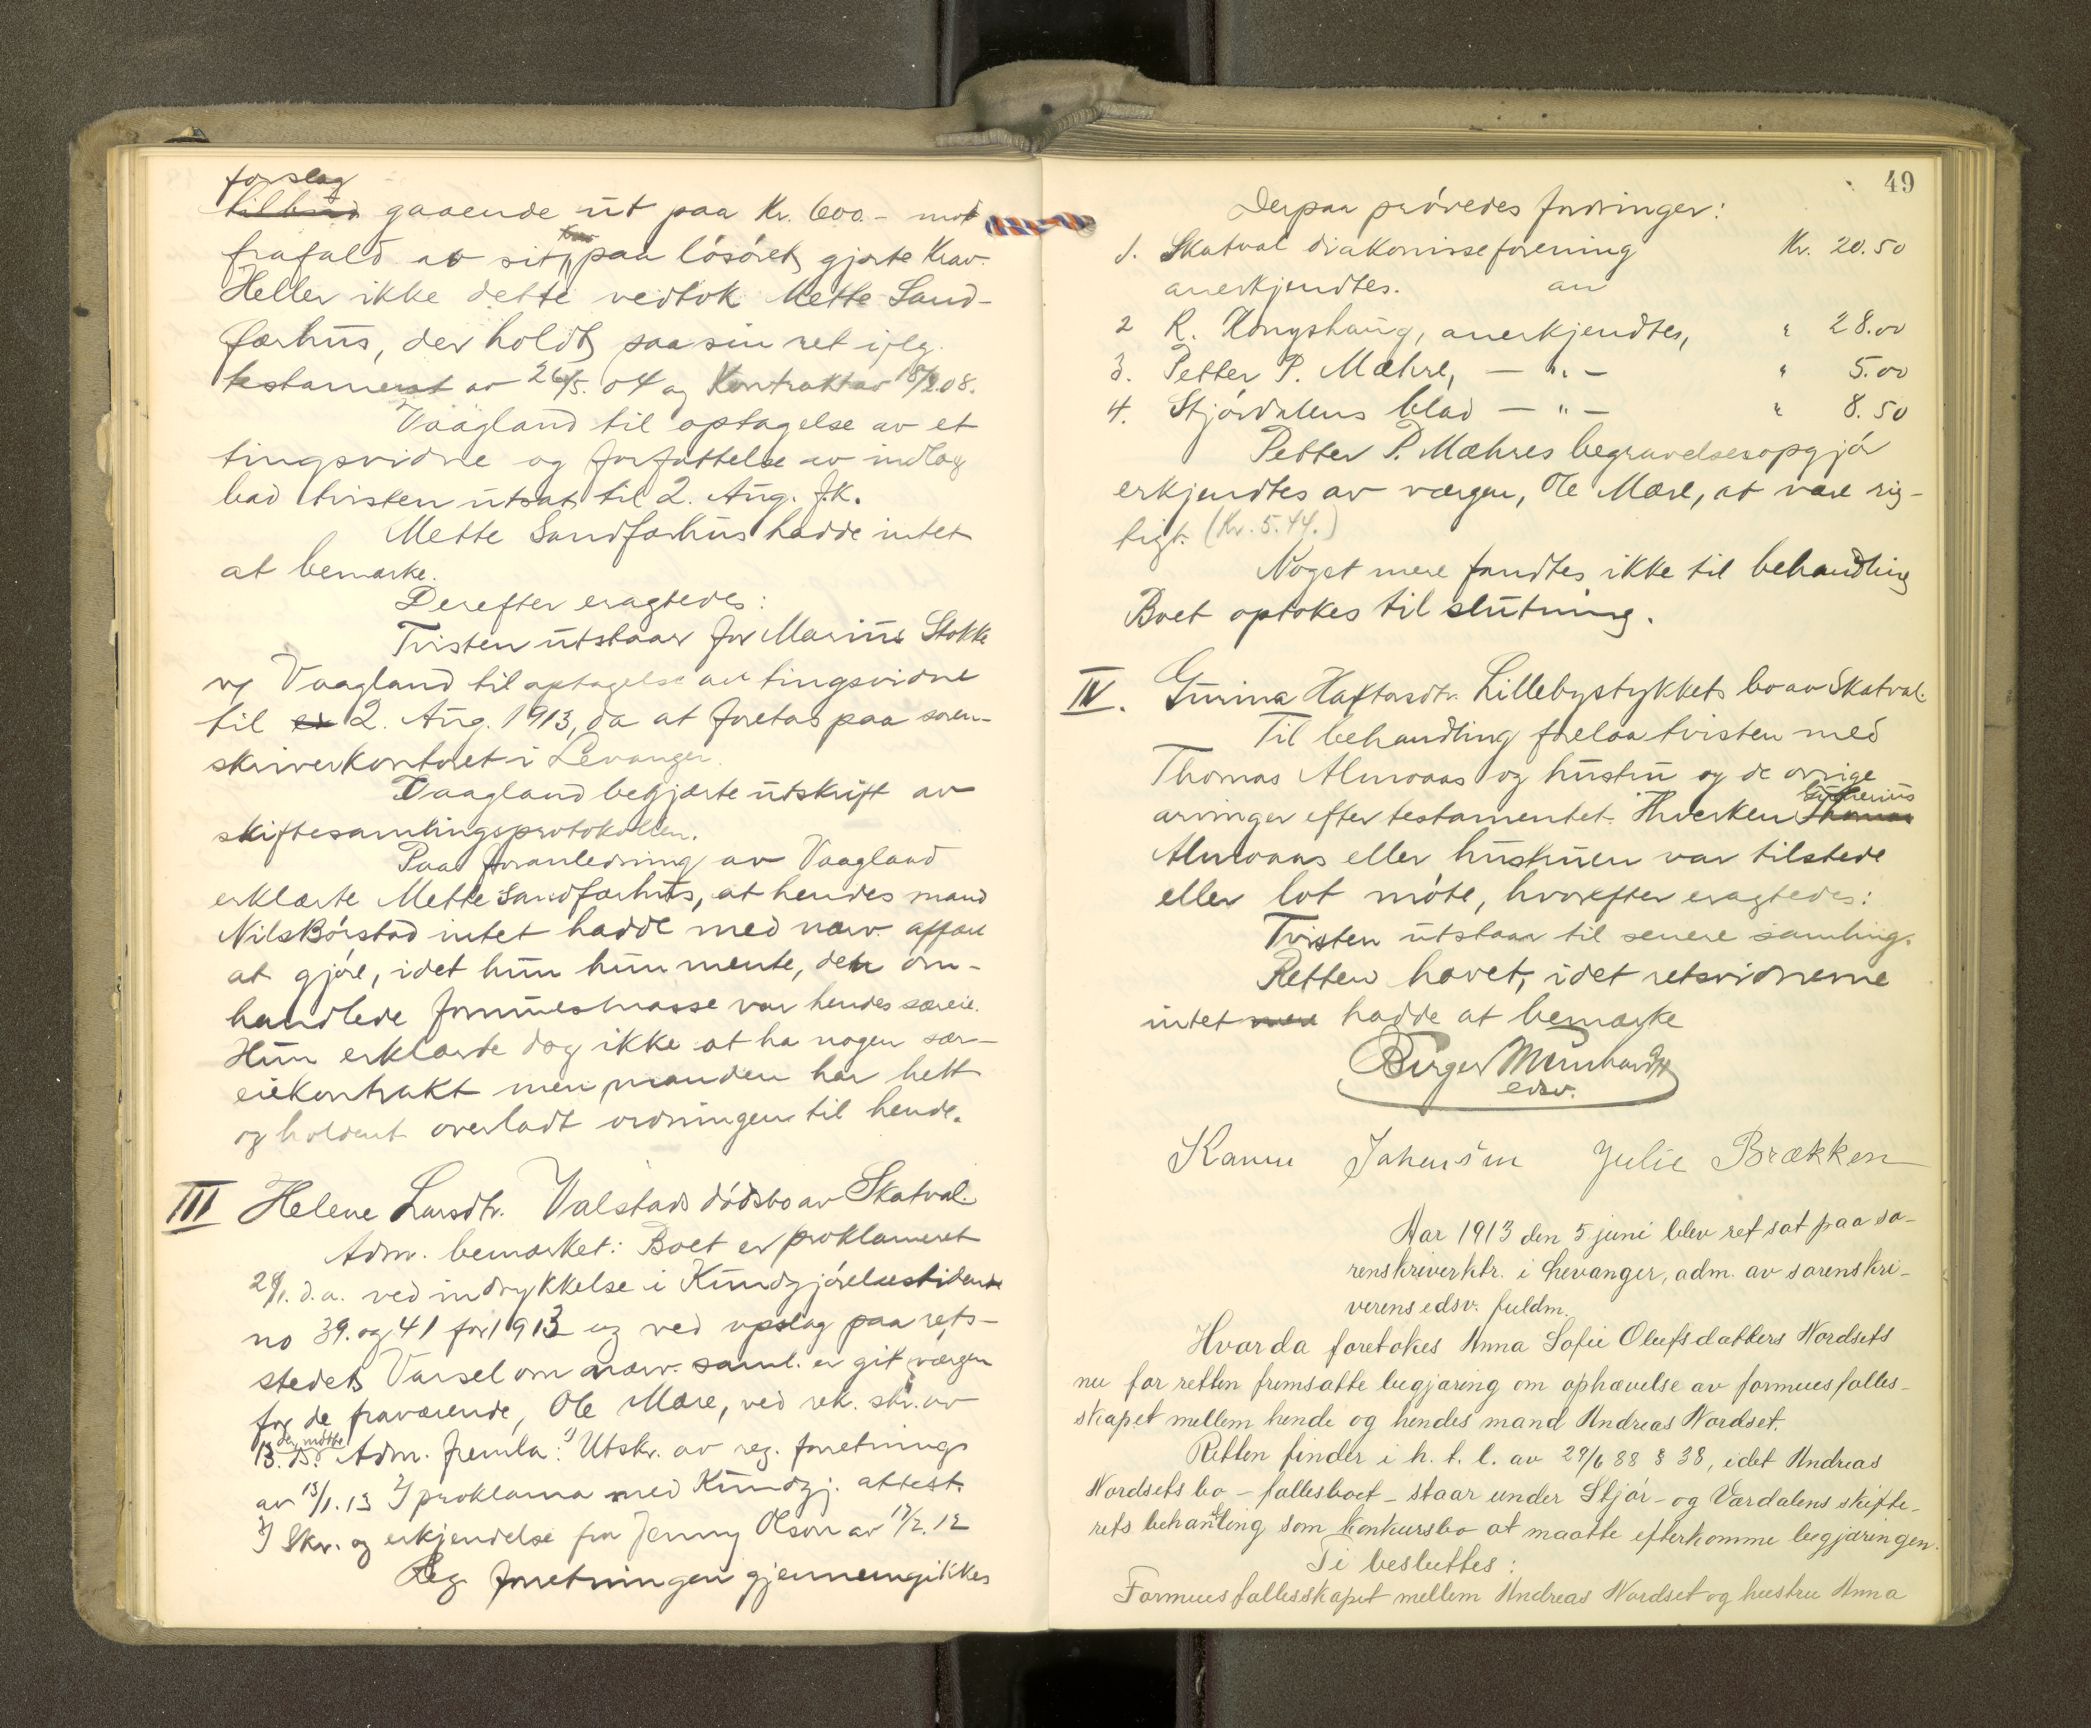 forslag
tilbud gaaende ut paa Kr. 600.- mot
frafald av sit paa lösöret gjorte Krav.
Heller ikke dette vedtok Mette Sand-
færhus, der holdt paa sin ret iflg.
testament av 26/5. 04 og Kontrakt av 18/2 08.
Vaagland til optagelse av et
tingsvidne og forfattelse av indlæg
bad tvisten utsat til 2. Aug. f.k.
Mette Sandfærhus hadde intet
at bemærke.
Derefter eragtedes:
Tvisten utstaar for Marius Stokke
og Vaagland til optagelse av tingsvidne
til 2. Aug. 1913, da at foretas paa soren-
skriverkontoret i Levanger.
Vaagland begjærte utskrift av
skiftesamlingsprotokollen.
Paa foranledning av Vaagland
erklærte Mette Sandfærhus, at hendes mand
Nils Börstad intet hadde med nærv. affære
at gjöre, idet hun hun mente, den om-
handlede formuesmasse var hendes særeie.
Hun erklærte dog ikke at ha nogen sær-
eiekontrakt men manden har helt
og holdent overladt ordningen til hende.
III Helene Larsdtr. Valstads dödsbo av Skatval.
Adm. bemærket: Boet er proklameret
29/1. d.a. ved indrykkelse i Kundgjörelsestidende
no 39. og 41 for 1913 og ved opslag paa rets-
stedet. Varsel om nærv. saml. er git værgen
for de fraværende, Ole Mære, ved rek. skr. av
13. ds. der mötte Adm. fremla: 1) Utskr. av reg. forretnings
av 13/1. 13 2) proklama med Kundgj. attest.
3) Skr. og erkjendelse fra Jenny Olson av 17/2. 12
Reg. forretningen gjennemgikkes
49
Derpaa prövedes fordringer:
1. Skatval diakonisseforening Kr. 20.50
anerkjendtes. an
2 R. Kongshaug, anerkjendtes, " 28.00
3. Petter P. Mæhre, — " — " 5.00
4. Stjördalens blad — " — " 8.50
Petter P. Mæhres begravelsesopgjör
erkjendtes av værgen, Ole Mære, at være rig-
tigt. (Kr. 5.44.)
Noget mere fandtes ikke til behandling
Boet optokes til slutning.
IV. Gurina Haftorsdtr. Lillebystykkets bo av Skatval.
Til behandling forelaa tvisten med
Thomas Almoaas og hustru og de övrige
arvinger efter testamentet. Hverken Thomas
Almoaas eller hustruen var tilstede
eller lot möte, hvorefter eragtedes:
Tvisten utstaar til senere samling.
Retten hævet, idet retsvidnerne
intet mere hadde at bemærke
Birger Meinhardt
edsv.
Karen Johansen Julie Brækken
Aar 1913 den 5 juni blev ret sat paa so-
renskriverktr. i Levanger, adm. av sorenskri-
verens edsv. fuldm.
Hvor da foretokes Anna Sofie Olufsdatters Nordsets
nu for retten fremsatte begjæring om ophævelse av formuesfælles-
skapet mellem hende og hendes mand Andreas Nordset.
Retten finder i h. t. l. av 29/6 88 § 38, idet Andreas
Nordsets bo - fællesboet - staar under Stjör- og Værdalens skifte-
rets behandling som konkursbo at maatte efterkomme begjæringen.
Ti besluttes:
Formuesfællesskapet mellem Andreas Nordset og hustru Anna